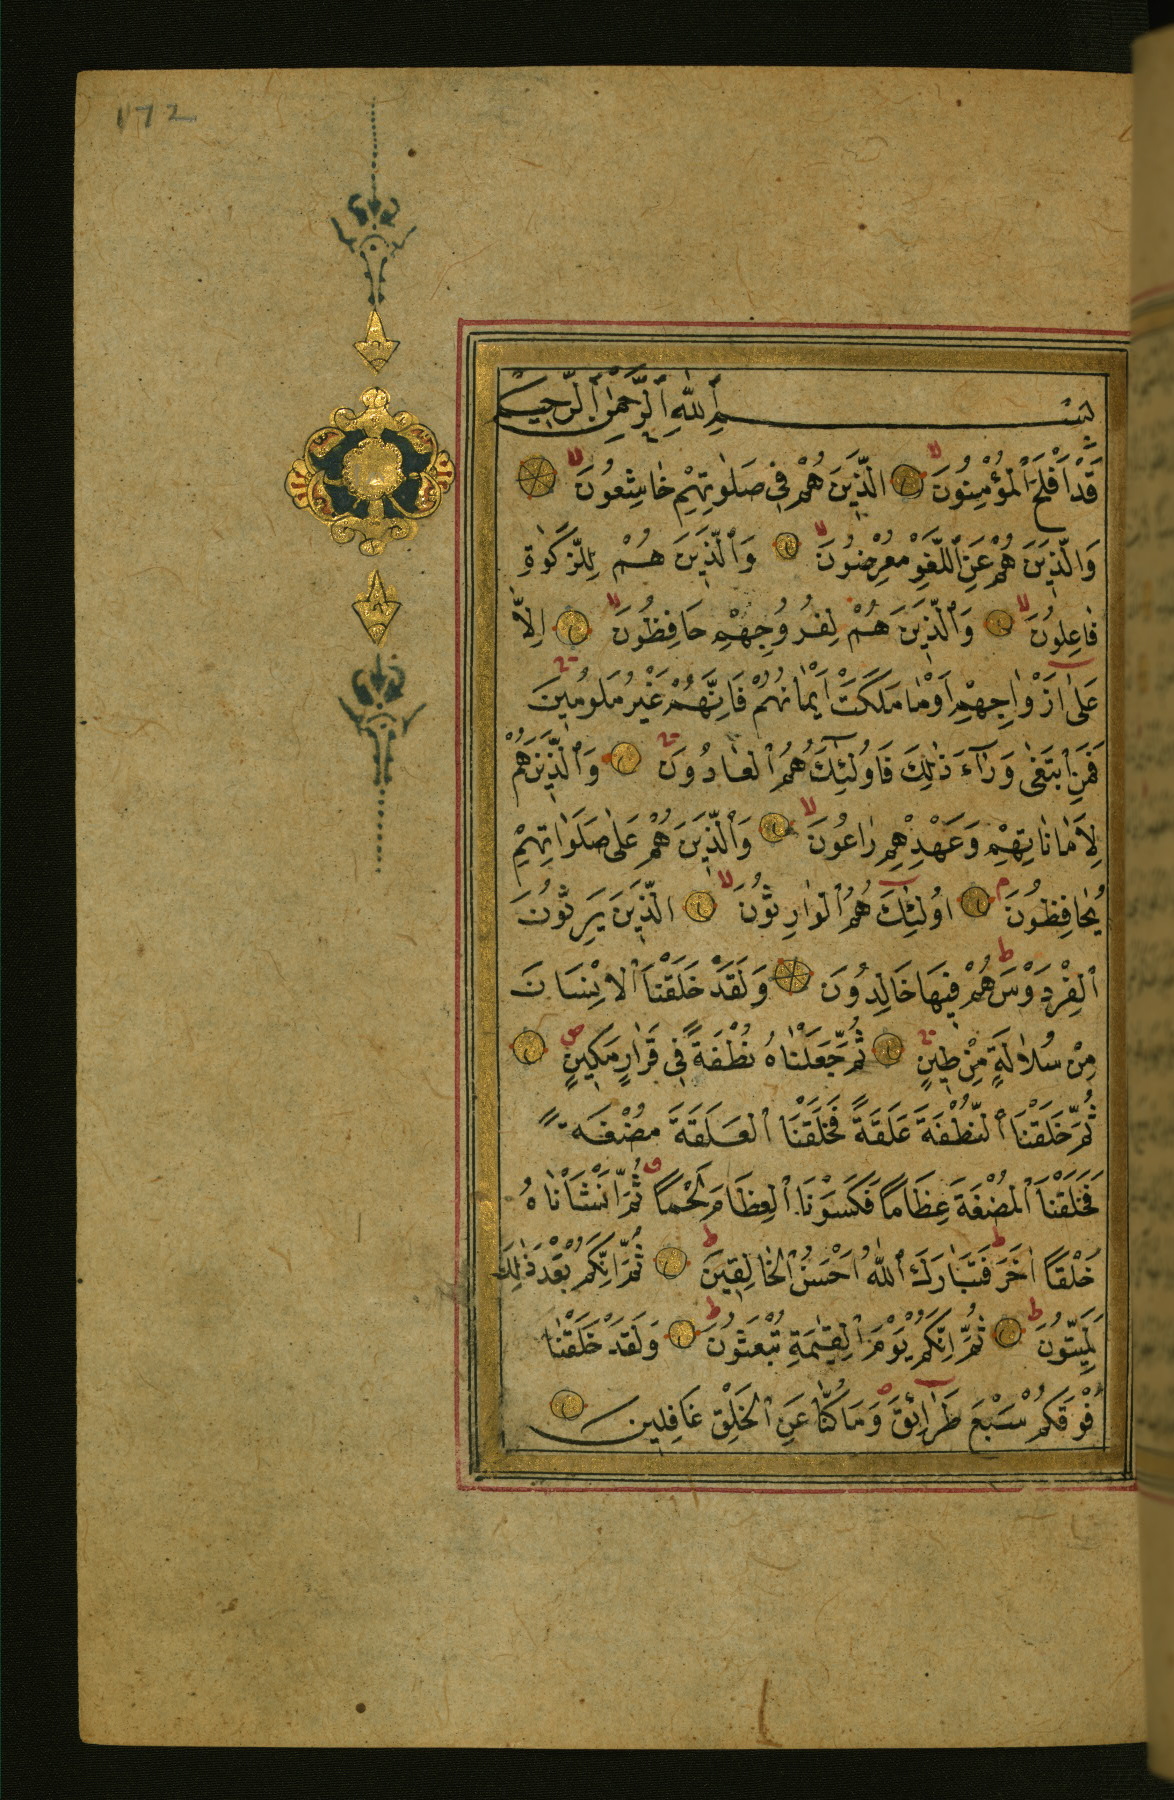 172
بِسْمِ ٱللّٰهِ ٱلرَّحْمٰنِ ٱلرَّحِيمِ
قَدْ اَفْلَحَ ٱلْمُؤْمِنُونَ لا الَّذِينَ هُمْ فِي صَلٰوتِهِمْ خَاشِعُونَ لا
وَالَّذِينَ هُمْ عَنِ ٱللَّغْوِ مُعْرِضُونَ لا وَٱلَّذِينَ هُمْ لِلزَّكَوٰةِ
فَاعِلُونَ لا وَٱلَّذِينَ هُمْ لِفُرُوجِهِمْ حَافِظُونَ لا اِلَّا
عَلٰٓى اَزْوَاجِهِمْ اَوْ مَا مَلَكَتْ اَيْمَانُهُمْ فَاِنَّهُمْ غَيْرُ مَلُومِينَ
فَمَنِ ٱبْتَغٰى وَرَآءَ ذٰلِكَ فَاُولٰٓئِكَ هُمُ ٱلْعَادُونَ وَٱلَّذِينَ هُمْ
لِاَمَانَاتِهِمْ وَعَهْدِهِمْ رَاعُونَ لا وَٱلَّذِينَ هُمْ عَلٰى صَلَوَاتِهِمْ
يُحَافِظُونَ م اُولٰٓئِكَ هُمُ ٱلْوَارِثُونَ لا الَّذِينَ يَرِثُونَ
ٱلْفِرْدَوْسَ ط هُمْ فِيهَا خَالِدُونَ وَلَقَدْ خَلَقْنَا ٱلْاِنْسَانَ
مِنْ سُلَالَةٍ مِنْ طِينٍ ثُمَّ جَعَلْنَاهُ نُطْفَةً فِي قَرَارٍ مَكِينٍ ص
ثُمَّ خَلَقْنَا ٱلنُّطْفَةَ عَلَقَةً فَخَلَقْنَا ٱلْعَلَقَةَ مُضْغَةً
فَخَلَقْنَا ٱلْمُضْغَةَ عِظَامًا فَكَسَوْنَا ٱلْعِظَامَ لَحْمًا ق ثُمَّ اَنْشَاْنَاهُ
خَلْقًا اٰخَرَ ط فَتَبَارَكَ ٱللّٰهُ اَحْسَنُ ٱلْخَالِقِينَ ط ثُمَّ اِنَّكُمْ بَعْدَ ذٰلِكَ
لَمَيِّتُونَ ط ثُمَّ اِنَّكُمْ يَوْمَ ٱلْقِيٰمَةِ تُبْعَثُونَ ط وَلَقَدْ خَلَقْنَا
فَوْقَكُمْ سَبْعَ طَرَآئِقَ وَمَا كُنَّا عَنِ ٱلْخَلْقِ غَافِلِينَ